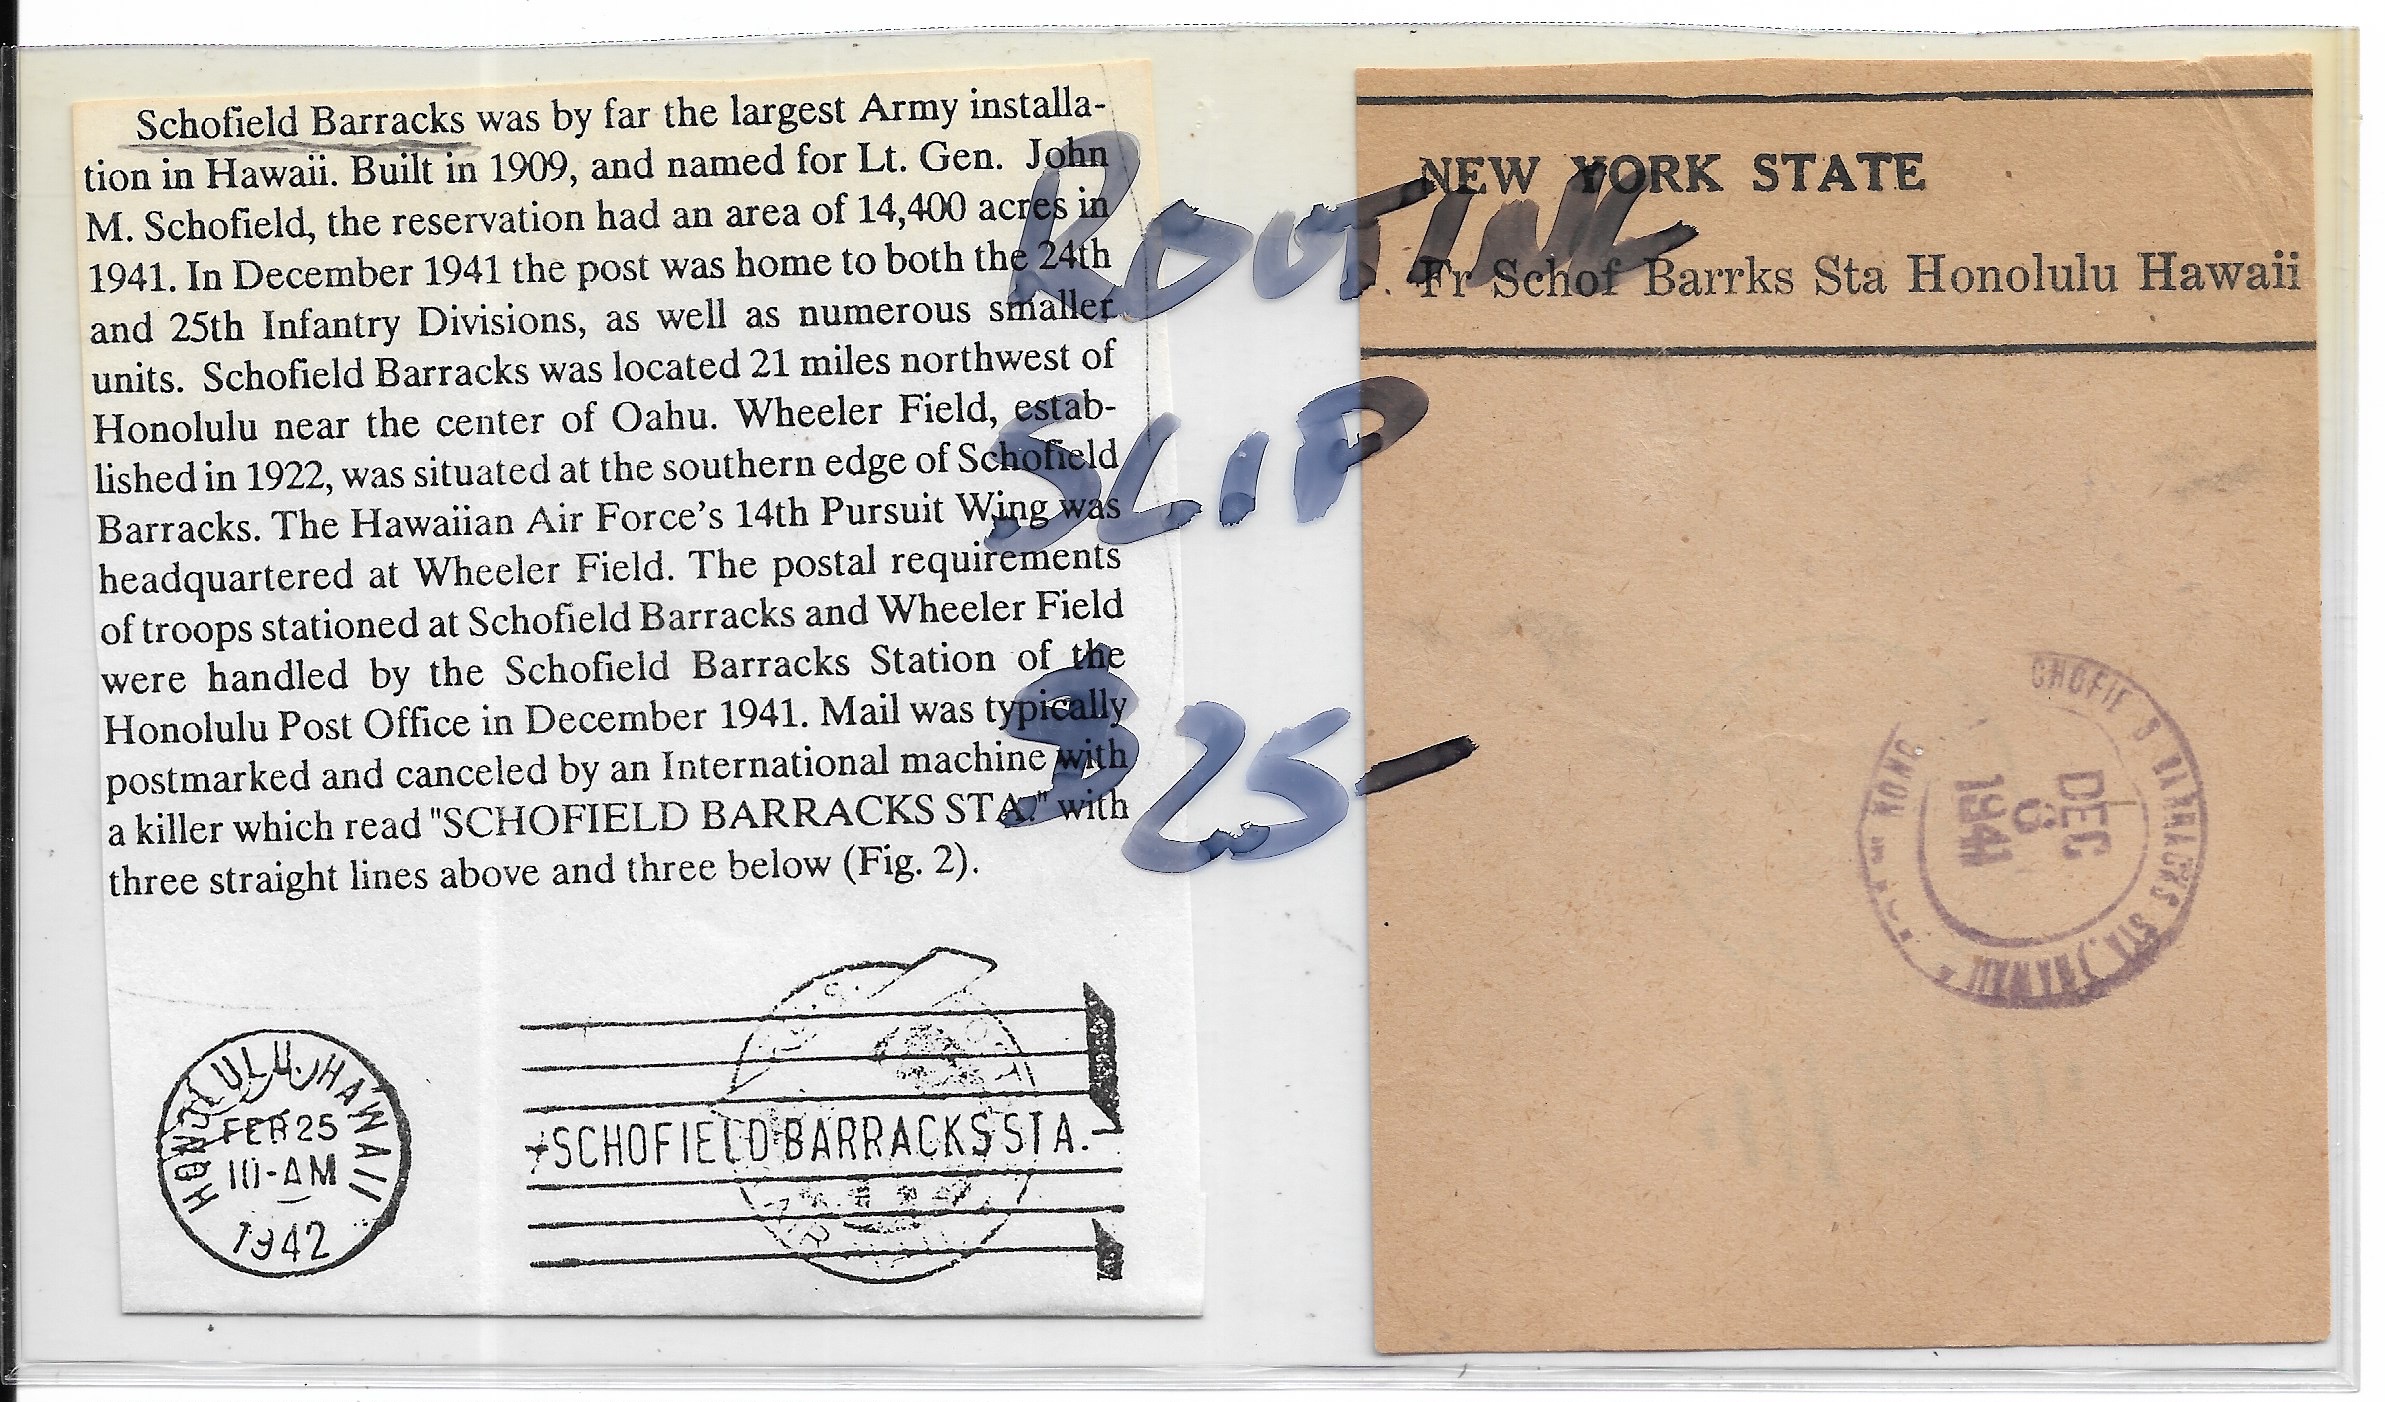 Schofield Barracks was by far the largest Army installa-
tion in Hawaii. Built in 1909, and named for Lt. Gen. John
M. Schofield, the reservation had an area of 14,400 acres in
1941. In December 1941 the post was home to both the 24th
and 25th Infantry Divisions, as well as numerous smaller
units. Schofield Barracks was located 21 miles northwest of
Honolulu near the center of Oahu. Wheeler Field, estab-
lished in 1922, was situated at the southern edge of Schofield
Barracks. The Hawaiian Air Force's 14th Pursuit Wing was
headquartered at Wheeler Field. The postal requirements
of troops stationed at Schofield Barracks and Wheeler Field
were handled by the Schofield Barracks Station of the
Honolulu Post Office in December 1941. Mail was typically
postmarked and canceled by an International machine with
a killer which read "SCHOFIELD BARRACKS STA." with
three straight lines above and three below (Fig. 2).
HONOLULU, HAWAII
FEB 25
10-AM
1942
SCHOFIELD BARRACKS STA.
ROUTING
SLIP
$25-
NEW YORK STATE
Fr Schof Barrks Sta Honolulu Hawaii
DEC
1941